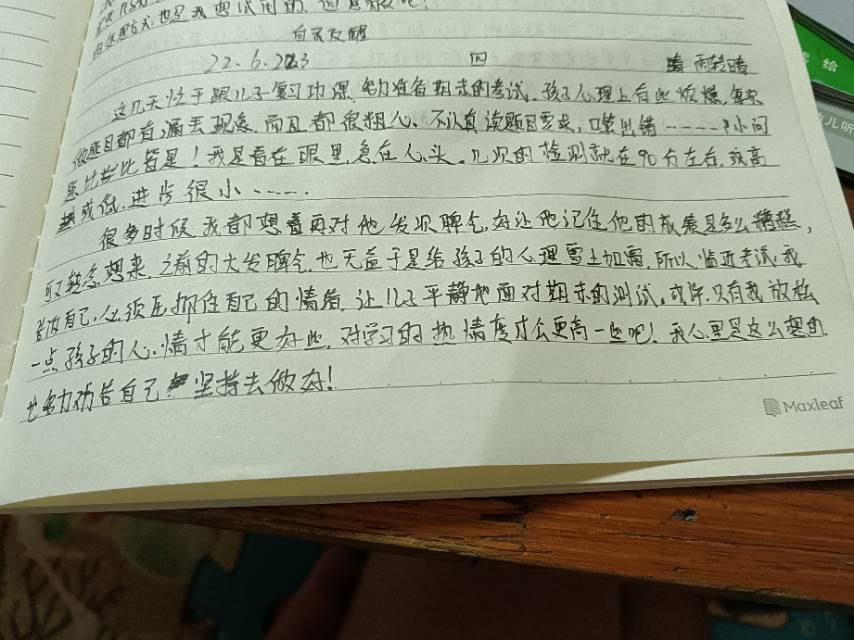 的处理方式,也是我要试用的,但是狠吧!
自我反醒
22.6.23 四 晴 雨转晴
这几天忙于跟儿子复习功课,努力准备期末的考试,孩子心理上有些烦燥,每次
做题目都有漏丢现象,而且都很粗心、不认真读题目要求,口算出错……小问
题比比皆是!我是看在眼里,急在心头。几次的检测就在90分左右,或高
或低,进步很小…….
很多时候我都想着再对他发次脾气,好让他记住他的成绩是多么糟糕,
可转念想来,之前的大发脾气,也无益于是给孩子的心理雪上加霜,所以临近考试,我
自己,必须压抑住自己的情绪,让儿子平静地面对期末的测试。或许,只有我放松
一点,孩子的心情才能更好些,对学习的热情度才会更高一些吧!我心里是这么想的
也努力劝告自己坚持去做好!
Maxleaf
给
儿听